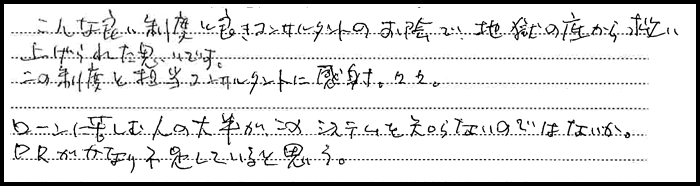 こんな良い制度と良きコンサルタントのお陰で、地獄の底から救い
上げられた思いです。
この制度と担当コンサルタントに感謝。々々。
ローンに苦しむ人の大半が、このシステムを知らないのではないか。
PRがかなり不足していると思う。